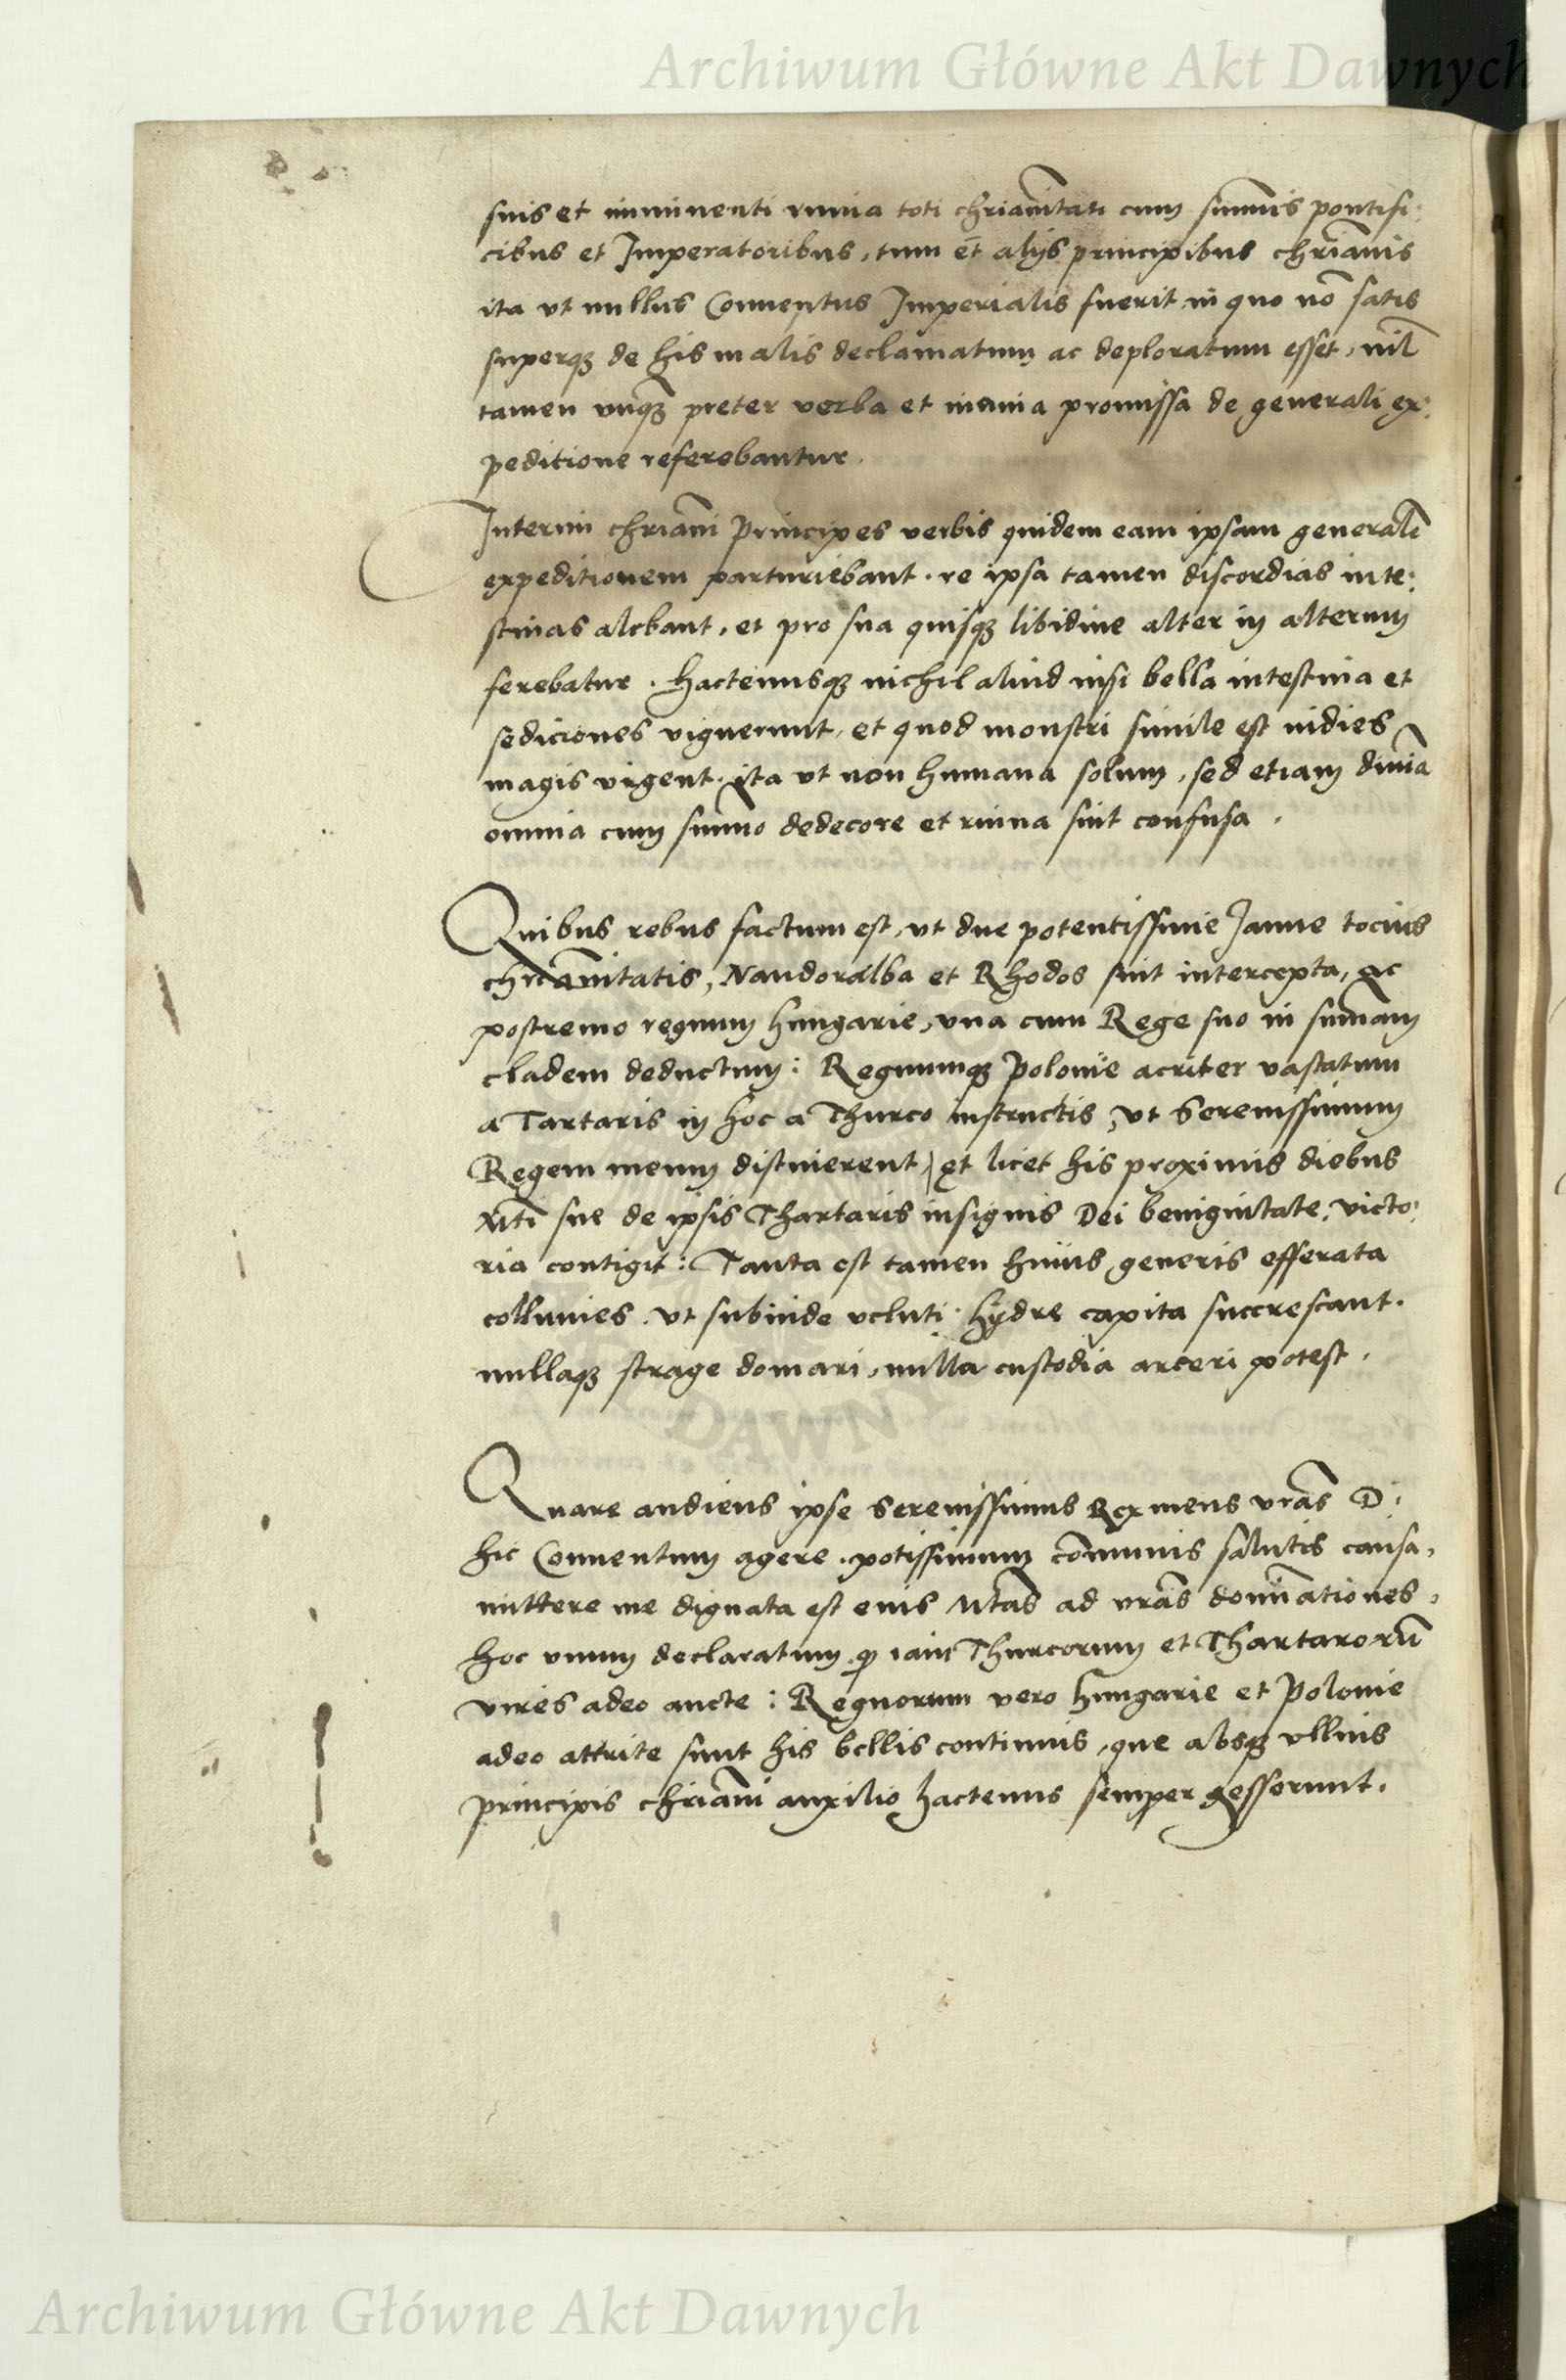 Archiwum Główne Akt Dawnych
suis et imminenti ruina toti chrianitati cum summis pontifi:
cibus et Imperatoribus, tum et alijs principibus chrianis
ita ut nullus Conventus Imperialis fuerit in quo no satis
superq de his malis declamatum ac deploratum esset, nil
tamen unq preter verba et inania promissa de generali ex:
peditione referebantur.
Interim chriani principes verbis quidem eam ipsam generale
expeditionem parturiebant. re ipsa tamen discordias inte:
stinas alebant, et pro sua quisq libidine alter in alterum
ferebatur. hactenusq nichil aliud nisi bella intestina et
sediciones viguerunt, et quod monstri simile est indies
magis vrgent. ita vt non humana solum, sed etiam divina
omnia cum summo dedecore et ruina sint confusa.
Quibus rebus factum est, vt due potentissime Janue tocius
chrianitatis, Nandoralba et Rhodos sint intercepta, ac
postremo regnum hungarie, vna cum Rege suo in summam
cladem deductum: Regnumq polonie acriter vastatum
a Tartaris in hoc a Thurco instructis, vt Serenissimum
Regem meum distinerent, et licet his proximis diebus
Mti sue de ipsis Thartaris insignis Dei benignitate, victo:
ria contigit: Tanta est tamen huius generis efferata
colluuies. vt subinde veluti hydre capita succrescant.
nullaq strage domari, nulla custodia arceri potest.
Quare audiens ipse Serenissimus Rex meus vras D:
hic Conventum agere. potissimum comunis salutis causa,
mittere me dignata est eius Mtas ad vras dominationes,
hoc vnum declaratum q iam Thurcorum et Thartaroru
vires adeo aucte: Regnorum vero hungarie et polonie
adeo attrite sunt his bellis continuis, que absq ullius
principis chriani auxilio hactenus semper gesserunt.
DAWNY
Archiwum Główne Akt Dawnych